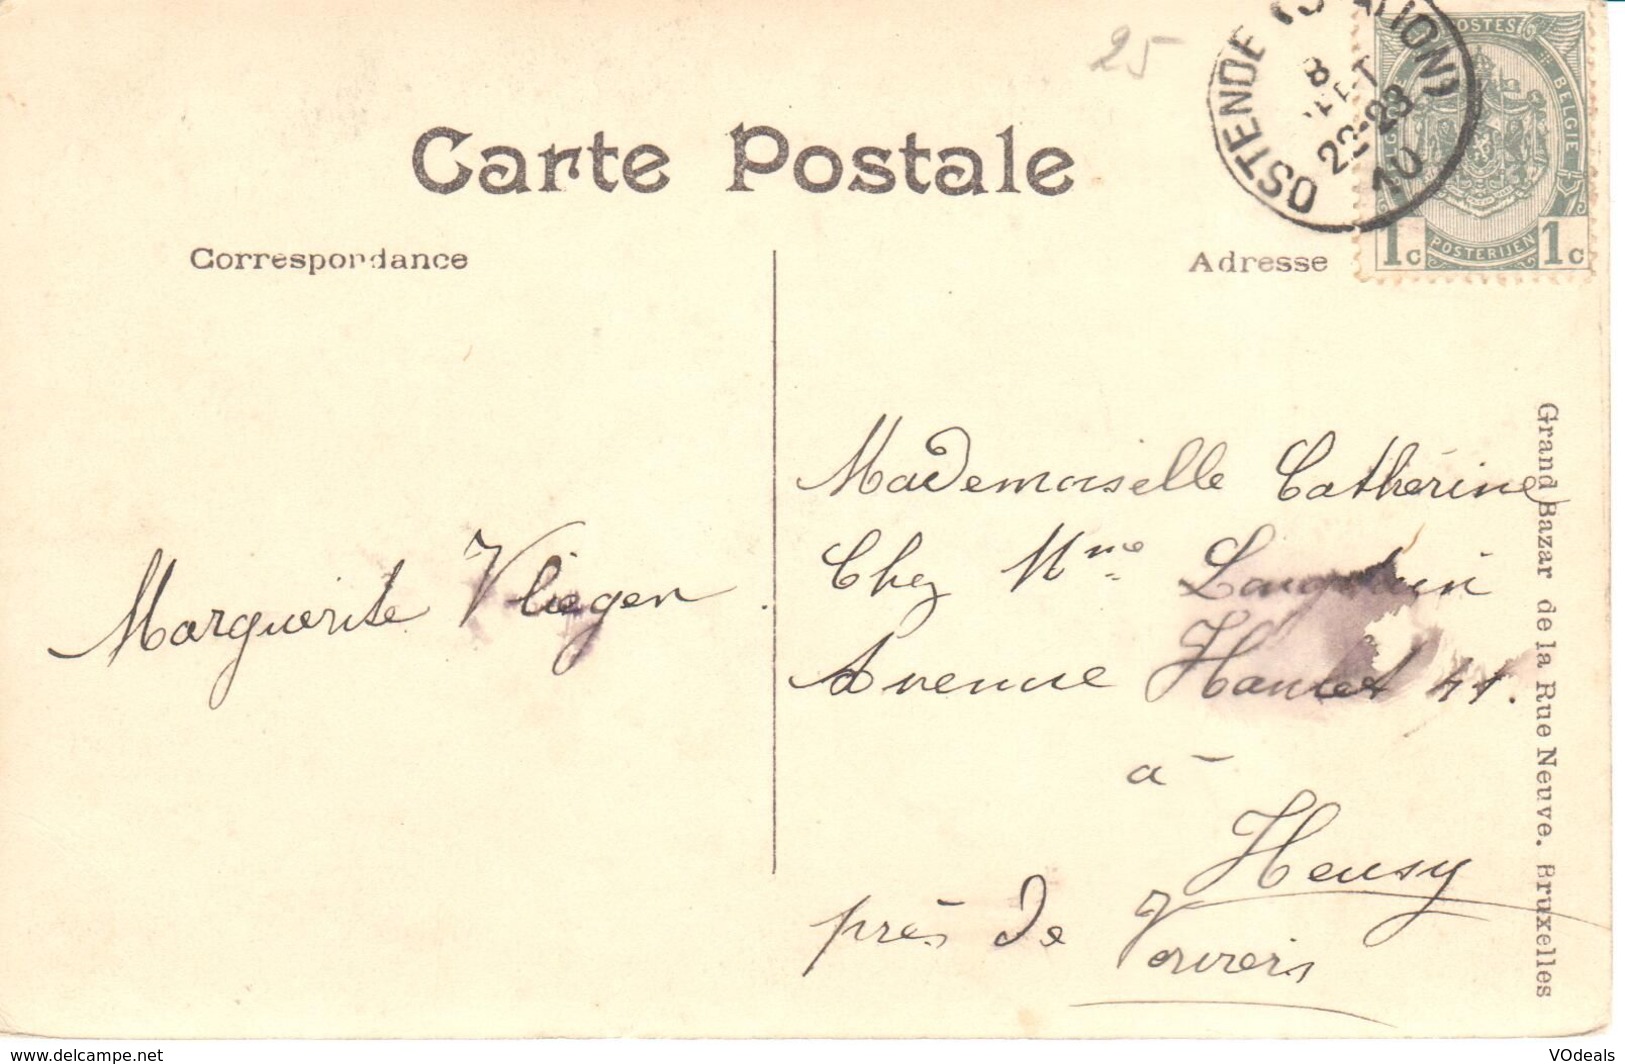 25
OSTENDE (STATION)
8
22-23
10
POSTES
BELGIE
POSTERIJEN
1c 1c
Carte Postale
Correspondance
Adresse
Mademoiselle Cathérine
Chez Mme
Avenue 41.
à
Heusy
près de Verviers
Marguerite Vliegen.
Grand Bazar de la Rue Neuve. Bruxelles
www.delcampe.net
VOdeals